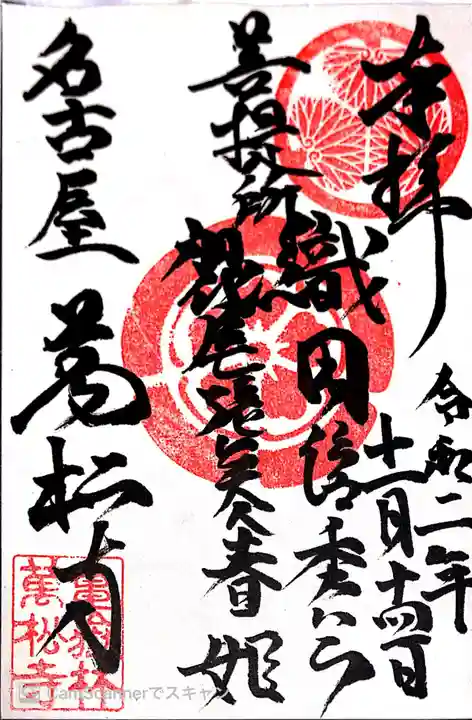 奉拝
令和二年
十一月十四日
織田信秀公
菩提所
尾張美人春姫
名古屋 萬松寺
亀嶽林
萬松寺
CamScannerでスキャン